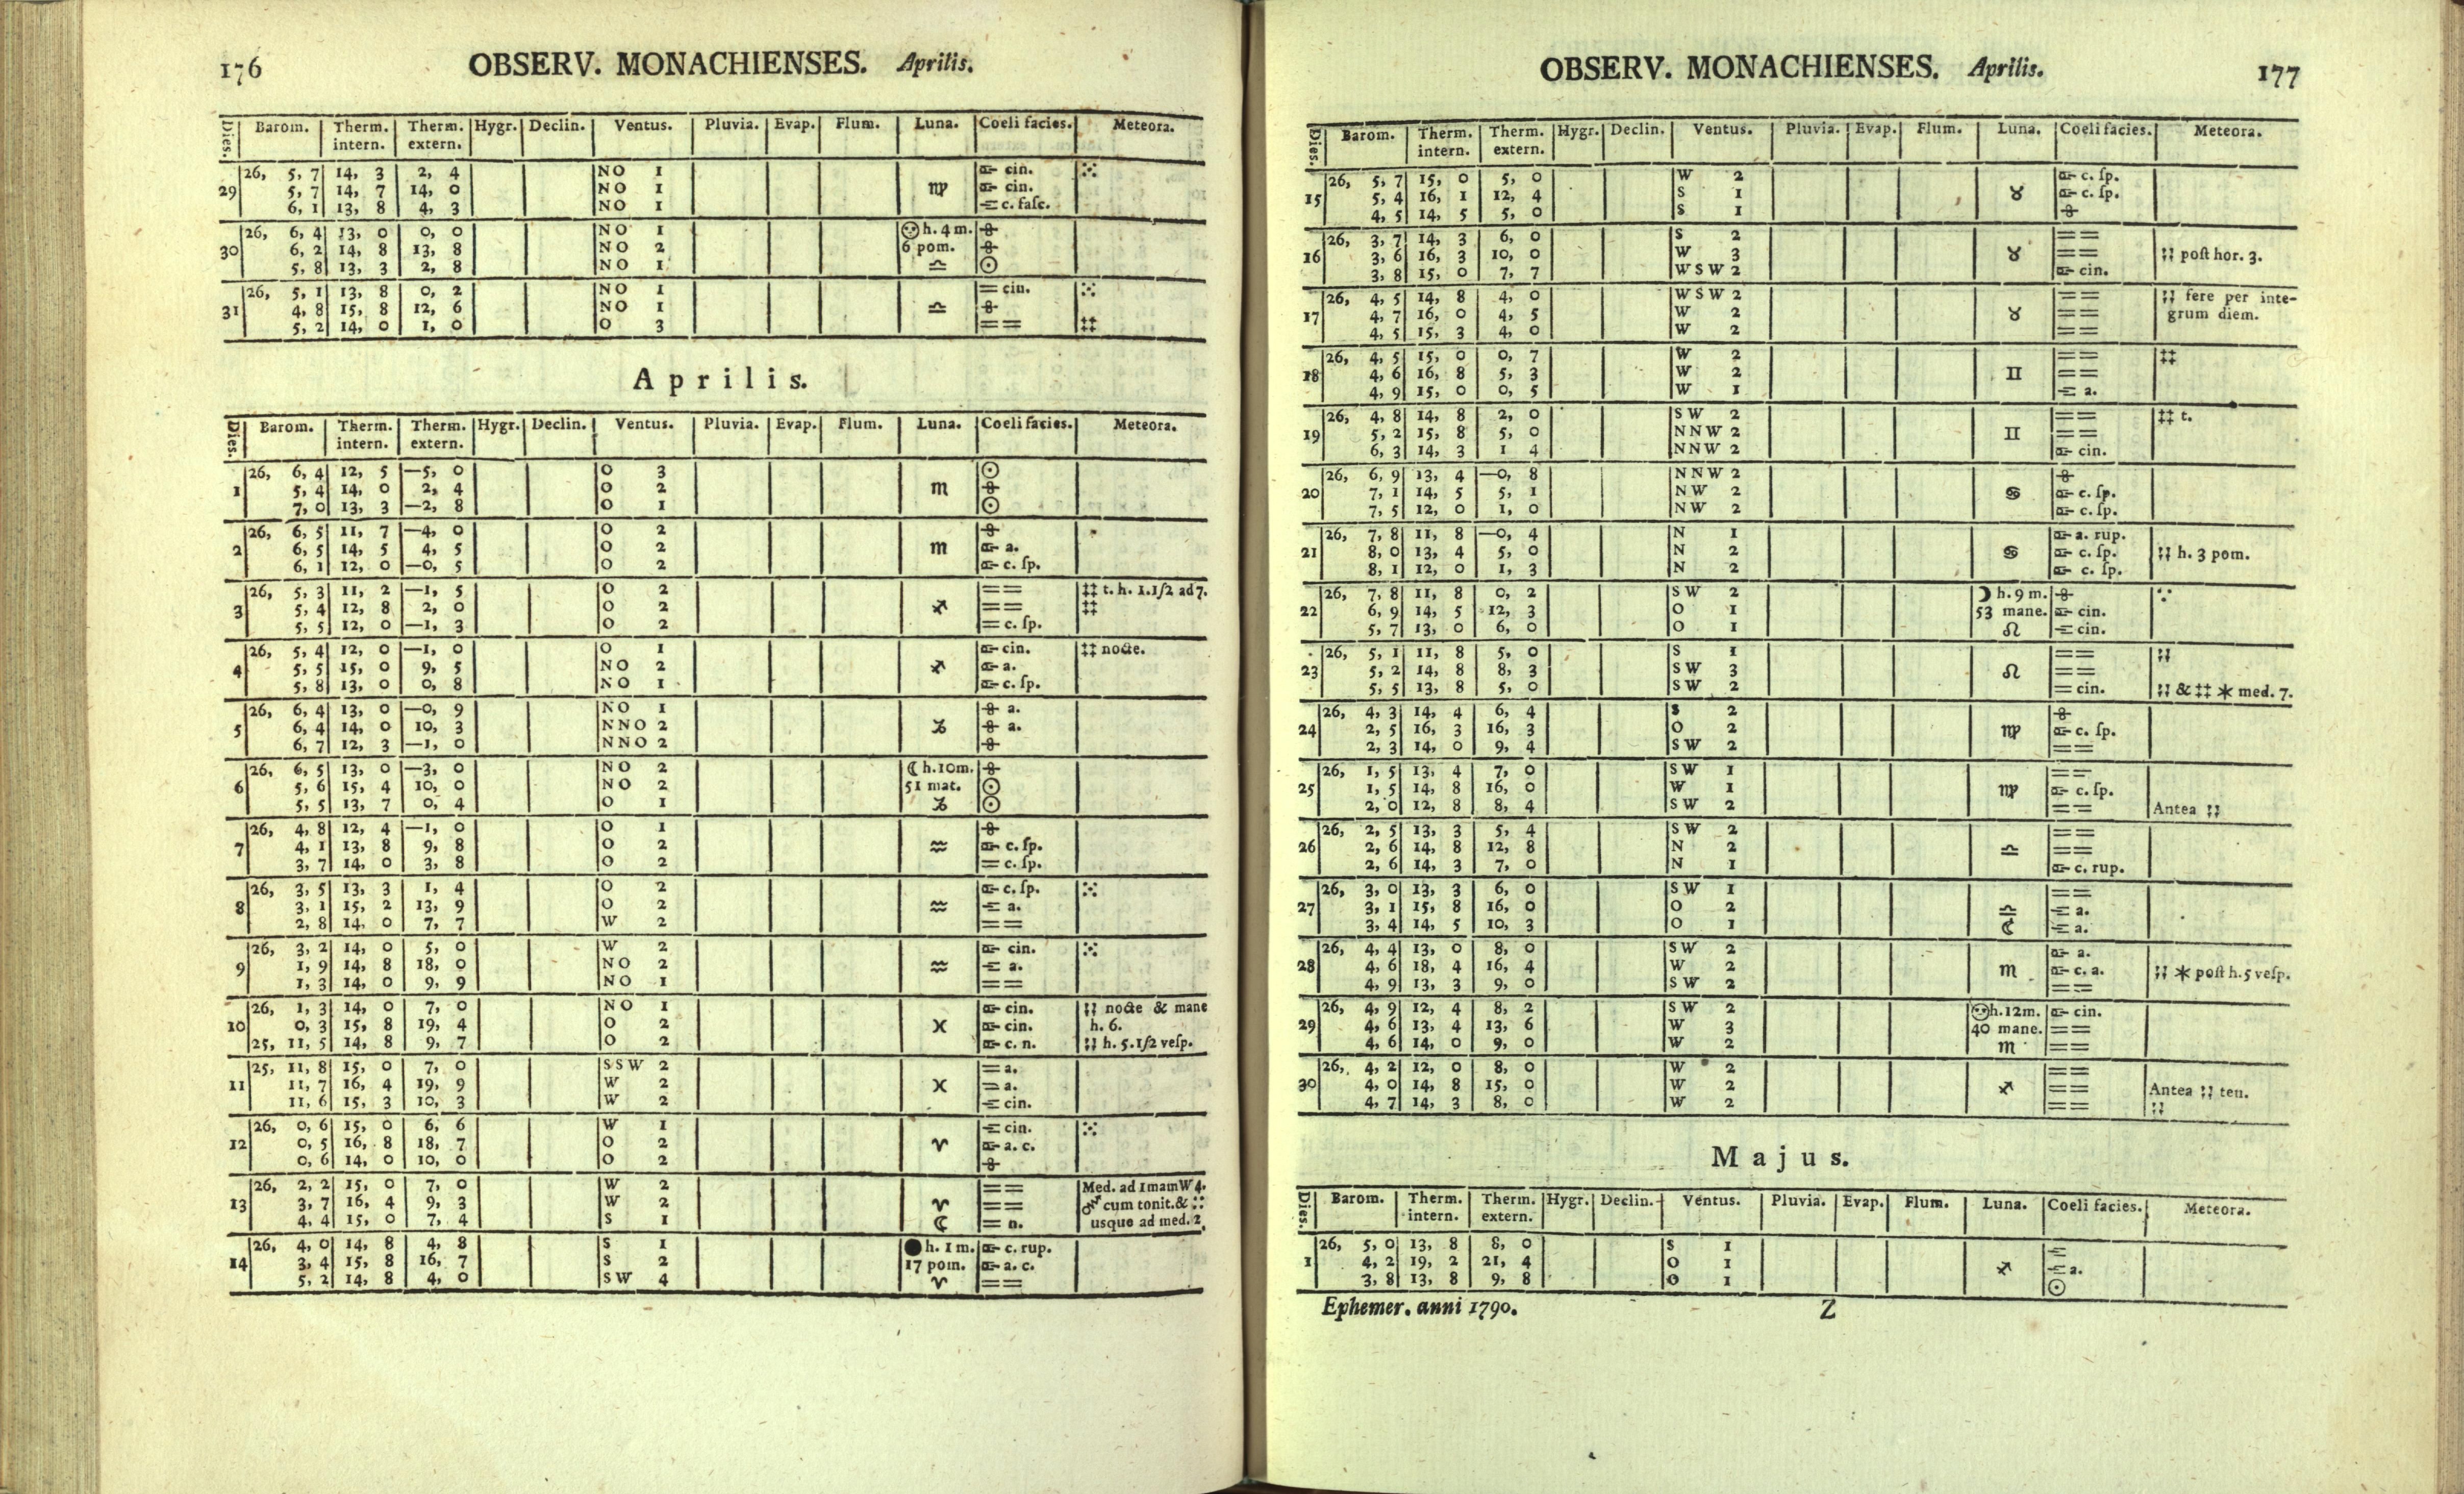 176 OBSERV. MONACHIENSES. Aprilis.
Dies. Barom. Therm. intern. Therm. extern. Hygr. Declin. Ventus. Pluvia. Evap. Flum. Luna. Coeli facies. Meteora.
26, 5, 7 14, 3 2, 4 NO 1 cin. ⁙
29 5, 7 14, 7 14, 0 NO 1 ♍ cin.
6, 1 13, 8 4, 3 NO 1 = c. faſc.
26, 6, 4 13, 0 0, 0 NO 1 h. 4 m.
30 6, 2 14, 8 13, 8 NO 2 6 pom.
5, 8 13, 3 2, 8 NO 1 ♎ ☉
26, 5, 1 13, 8 0, 2 NO 1 = cin. ⁙
31 4, 8 15, 8 12, 6 NO 1 ♎
5, 2 14, 0 1, 0 O 3 == ‡‡
Aprilis.
Dies. Barom. Therm. intern. Therm. extern. Hygr. Declin. Ventus. Pluvia. Evap. Flum. Luna. Coeli facies. Meteora.
26, 6, 4 12, 5 —5, 0 O 3 ☉
1 5, 4 14, 0 2, 4 O 2 ♏
7, 0 13, 3 —2, 8 O 1 ☉
26, 6, 5 11, 7 —4, 0 O 2
2 6, 5 14, 5 4, 5 O 2 ♏ a.
6, 1 12, 0 —0, 5 O 2 c. ſp.
26, 5, 3 11, 2 —1, 5 O 2 == ‡‡ t. h. 1.1/2 ad 7.
3 5, 4 12, 8 2, 0 O 2 ♐ == ‡‡
5, 5 12, 0 —1, 3 O 2 = c. ſp.
26, 5, 4 12, 0 —1, 0 O 1 cin. ‡‡ nocte.
4 5, 5 15, 0 9, 5 NO 2 ♐ a.
5, 8 13, 0 0, 8 NO 1 c. ſp.
26, 6, 4 13, 0 —0, 9 NO 1 a.
5 6, 4 14, 0 10, 3 NNO 2 ♑ a.
6, 7 12, 3 —1, 0 NNO 2
26, 6, 5 13, 0 —3, 0 NO 2 ☾ h. 10m.
6 5, 6 15, 4 10, 0 NO 2 51 mat. ☉
5, 5 13, 7 0, 4 O 1 ♑ ☉
26, 4, 8 12, 4 —1, 0 O 1
7 4, 1 13, 8 9, 8 O 2 ♒ c. ſp.
3, 7 14, 0 3, 8 O 2 = c. ſp.
26, 3, 5 13, 3 1, 4 O 2 c. ſp. ⁙
8 3, 1 15, 2 13, 9 O 2 ♒ a.
2, 8 14, 0 7, 7 W 2 ==
26, 3, 2 14, 0 5, 0 W 2 cin. ⁙
9 1, 9 14, 8 18, 0 NO 2 ♒ a.
1, 3 14, 0 9, 9 NO 1 ==
26, 1, 3 14, 0 7, 0 NO 1 cin. nocte & mane
10 0, 3 15, 8 19, 4 O 2 ♓ cin. h. 6.
25, 11, 5 14, 8 9, 7 O 2 c. n. h. 5.1/2 veſp.
25, 11, 8 15, 0 7, 0 SSW 2 = a.
11 11, 7 16, 4 19, 9 W 2 ♓ = a.
11, 6 15, 3 10, 3 W 2 cin.
26, 0, 6 15, 0 6, 6 W 1 cin. ⁙
12 0, 5 16, 8 18, 7 O 2 ♈ a. c.
0, 6 14, 0 10, 0 O 2
26, 2, 2 15, 0 7, 0 W 2 == Med. ad 1mam W 4.
13 3, 7 16, 4 9, 3 W 2 ♈ == cum tonit. &
4, 4 15, 0 7, 4 S 1 ☾ = n. usque ad med. 2.
26, 4, 0 14, 8 4, 8 S 1 ● h. 1 m. c. rup.
14 3, 4 15, 8 16, 7 S 2 17 pom. a. c.
5, 2 14, 8 4, 0 SW 4 ♈ ==
OBSERV. MONACHIENSES. Aprilis. 177
Dies. Barom. Therm. intern. Therm. extern. Hygr. Declin. Ventus. Pluvia. Evap. Flum. Luna. Coeli facies. Meteora.
26, 5, 7 15, 0 5, 0 W 2 c. ſp.
15 5, 4 16, 1 12, 4 S 1 ♉ c. ſp.
4, 5 14, 5 5, 0 S 1
26, 3, 7 14, 3 6, 0 S 2 ==
16 3, 6 16, 3 10, 0 W 3 ♉ == poſt hor. 3.
3, 8 15, 0 7, 7 WSW 2 cin.
26, 4, 5 14, 8 4, 0 WSW 2 == fere per inte-
17 4, 7 16, 0 4, 5 W 2 ♉ == grum diem.
4, 5 15, 3 4, 0 W 2 ==
26, 4, 5 15, 0 0, 7 W 2 == ‡‡
18 4, 6 16, 8 5, 3 W 2 ♊ ==
4, 9 15, 0 0, 5 W 1 a.
26, 4, 8 14, 8 2, 0 SW 2 == ‡‡ t.
19 5, 2 15, 8 5, 0 NNW 2 ♊ ==
6, 3 14, 3 1 4 NNW 2 cin.
26, 6, 9 13, 4 —0, 8 NNW 2
20 7, 1 14, 5 5, 1 NW 2 ♋ c. ſp.
7, 5 12, 0 1, 0 NW 2 c. ſp.
26, 7, 8 11, 8 —0, 4 N 1 a. rup.
21 8, 0 13, 4 5, 0 N 2 ♋ c. ſp. h. 3 pom.
8, 1 12, 0 1, 3 N 2 c. ſp.
26, 7, 8 11, 8 0, 2 SW 2 ☽ h. 9 m.
22 6, 9 14, 5 12, 3 O 1 53 mane. cin.
5, 7 13, 0 6, 0 O 1 ♌ cin.
26, 5, 1 11, 8 5, 0 S 1 ==
23 5, 2 14, 8 8, 3 SW 3 ♌ ==
5, 5 13, 8 5, 0 SW 2 = cin. & ‡‡ * med. 7.
26, 4, 3 14, 4 6, 4 S 2
24 2, 5 16, 3 16, 3 O 2 ♍ c. ſp.
2, 3 14, 0 9, 4 SW 2 ==
26, 1, 5 13, 4 7, 0 SW 1 ==
25 1, 5 14, 8 16, 0 W 1 ♍ c. ſp.
2, 0 12, 8 8, 4 SW 2 == Antea
26, 2, 5 13, 3 5, 4 SW 2 ==
26 2, 6 14, 8 12, 8 N 2 ♎ ==
2, 6 14, 3 7, 0 N 1 c. rup.
26, 3, 0 13, 3 6, 0 SW 1 ==
27 3, 1 15, 8 16, 0 O 2 ♎ a.
3, 4 14, 5 10, 3 O 1 ☾ a.
26, 4, 4 13, 0 8, 0 SW 2 a.
28 4, 6 18, 4 16, 4 W 2 ♏ c. a. * poſt h. 5 veſp.
4, 9 13, 3 9, 0 SW 2 ==
26, 4, 9 12, 4 8, 2 SW 2 h. 12m. cin.
29 4, 6 13, 4 13, 6 W 3 40 mane. ==
4, 6 14, 0 9, 0 W 2 ♏ ==
26, 4, 2 12, 0 8, 0 W 2 ==
30 4, 0 14, 8 15, 0 W 2 ♐ == Antea ten.
4, 7 14, 3 8, 0 W 2 ==
Majus.
Dies. Barom. Therm. intern. Therm. extern. Hygr. Declin. Ventus. Pluvia. Evap. Flum. Luna. Coeli facies. Meteora.
26, 5, 0 13, 8 8, 0 S 1
1 4, 2 19, 2 21, 4 O 1 ♐ a.
3, 8 13, 8 9, 8 O 1 ☉
Ephemer. anni 1790. Z